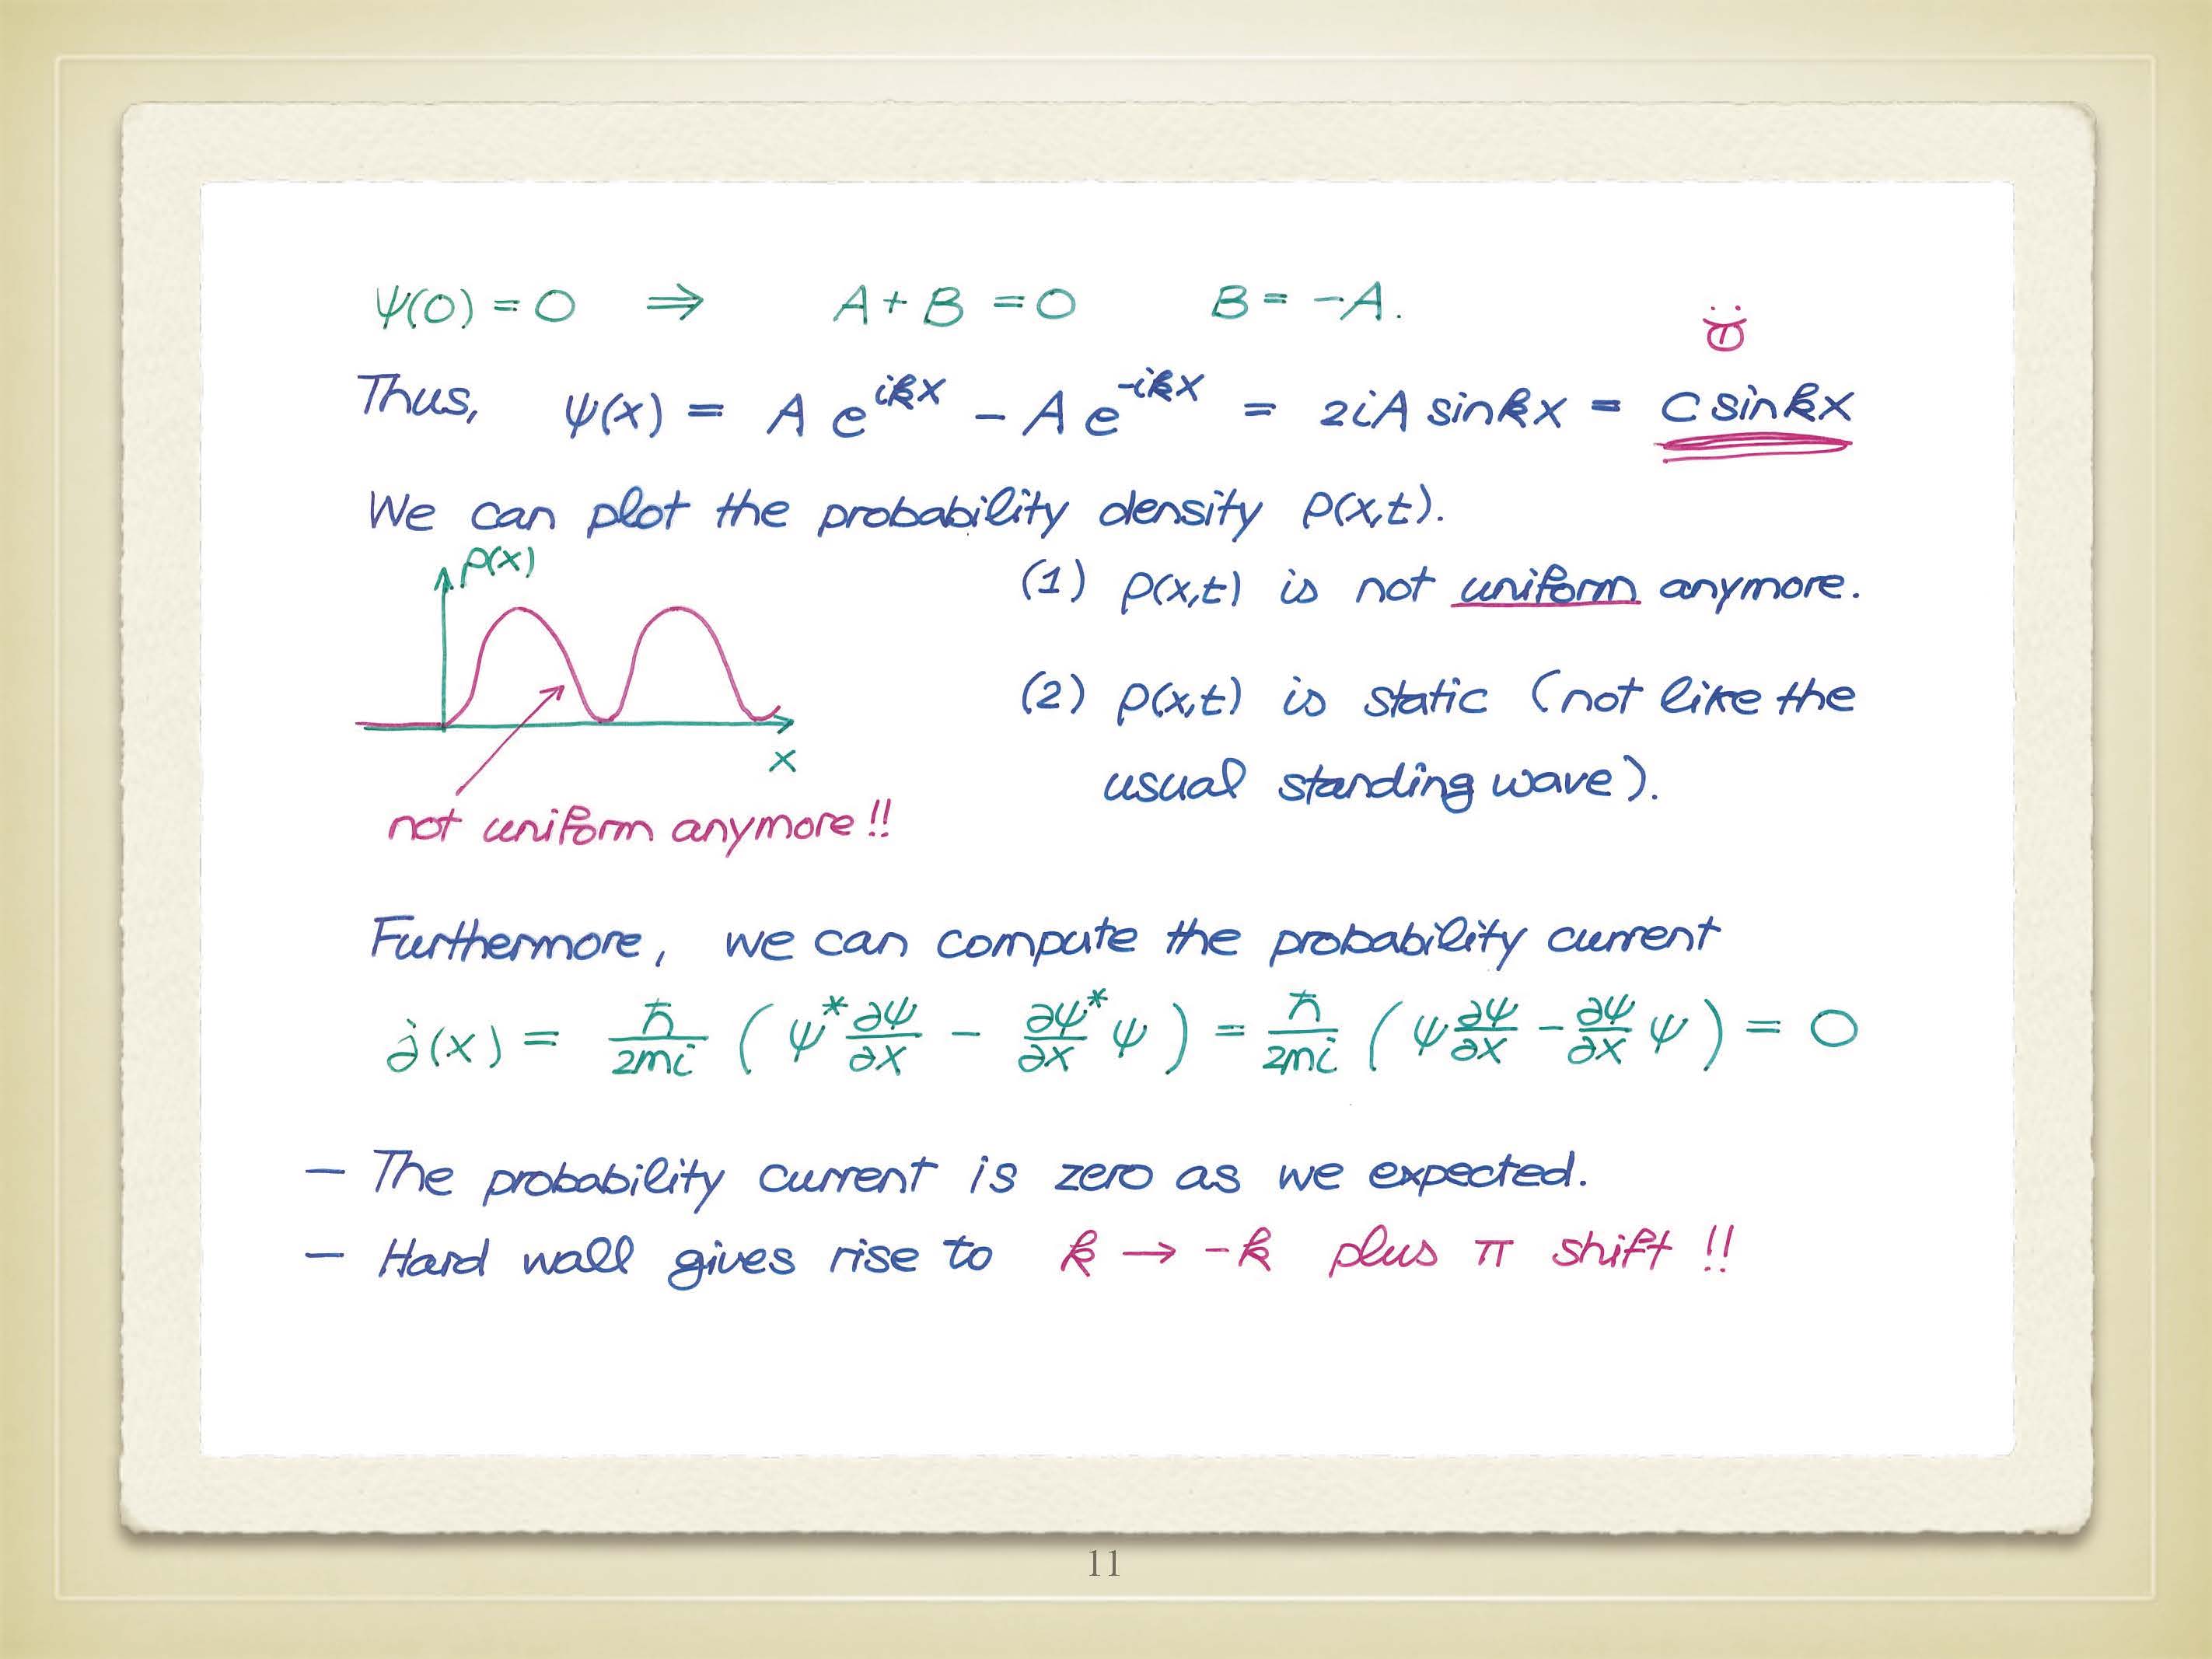 ψ(0) = 0 ⇒ A + B = 0 B = -A.
Thus, ψ(x) = A e^{ikx} - A e^{-ikx} = 2iA sinkx = C sinkx
We can plot the probability density ρ(x,t).
ρ(x)
(1) ρ(x,t) is not uniform anymore.
(2) ρ(x,t) is static (not like the
x
usual standing wave).
not uniform anymore!!
Furthermore, we can compute the probability current
j(x) = ħ/2mi ( ψ* ∂ψ/∂x - ∂ψ*/∂x ψ ) = ħ/2mi ( ψ ∂ψ/∂x - ∂ψ/∂x ψ ) = 0
— The probability current is zero as we expected.
— Hard wall gives rise to k → -k plus π shift !!
11